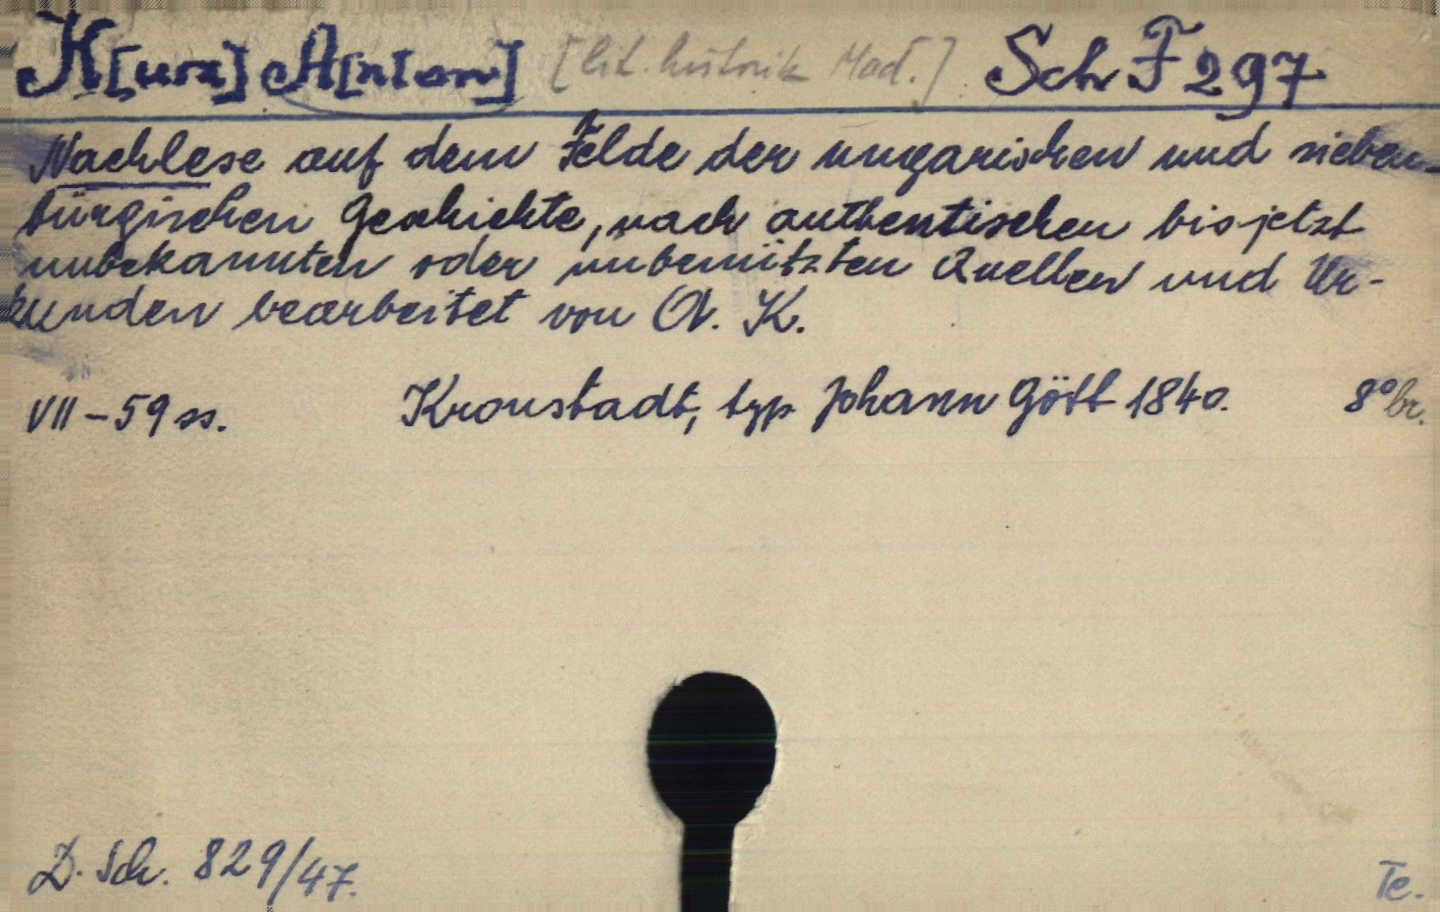 K[urz] A[nton] [lit. historik Maď.] Sch F 297
Nachlese auf dem Felde der ungarischen und sieben-
bürgischen Geschichte, nach authentischen bis jetzt
unbekannten oder unbenützten Quellen und Ur-
kunden bearbeitet von A. K.
VII - 59 ss. Kronstadt, typ Johann Gött 1840. 8° br.
D. Sch. 829/47. Te.